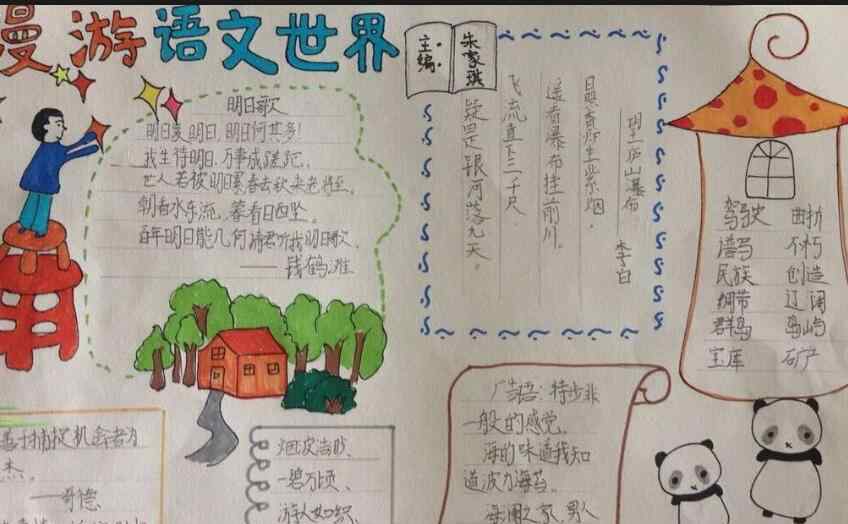 漫游语文世界
主编:
朱家琪
明日歌
明日复明日,明日何其多!
我生待明日,万事成蹉跎。
世人若被明日累,春去秋来老将至。
朝看水东流,暮看日西坠。
百年明日能几何,请君听我明日歌。
——钱鹤滩
望庐山瀑布 李白
日照香炉生紫烟,
遥看瀑布挂前川。
飞流直下三千尺,
疑是银河落九天。
驾驶 曲折
谱写 不朽
民族 创造
绸带 辽阔
群岛 岛屿
宝库 矿产
善于捕捉机会者为
杰。
——哥德
烟波浩渺、
一碧万顷、
游人如织、
广告语:特步非
一般的感觉。
海的味道我知
道波力海苔。
海澜之家,男人